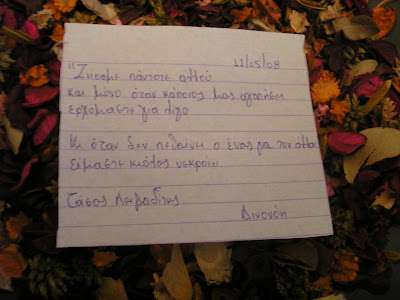 "Ζούμε πάντοτε αλλού 11/05/08
και μόνο όταν κάποιος μας αγαπήσει
ερχόμαστε για λίγο
Κι όταν δεν πεθαίνει ο ένας για τον άλλον
είμαστε κιόλας νεκροί"
Τάσος Λειβαδίτης